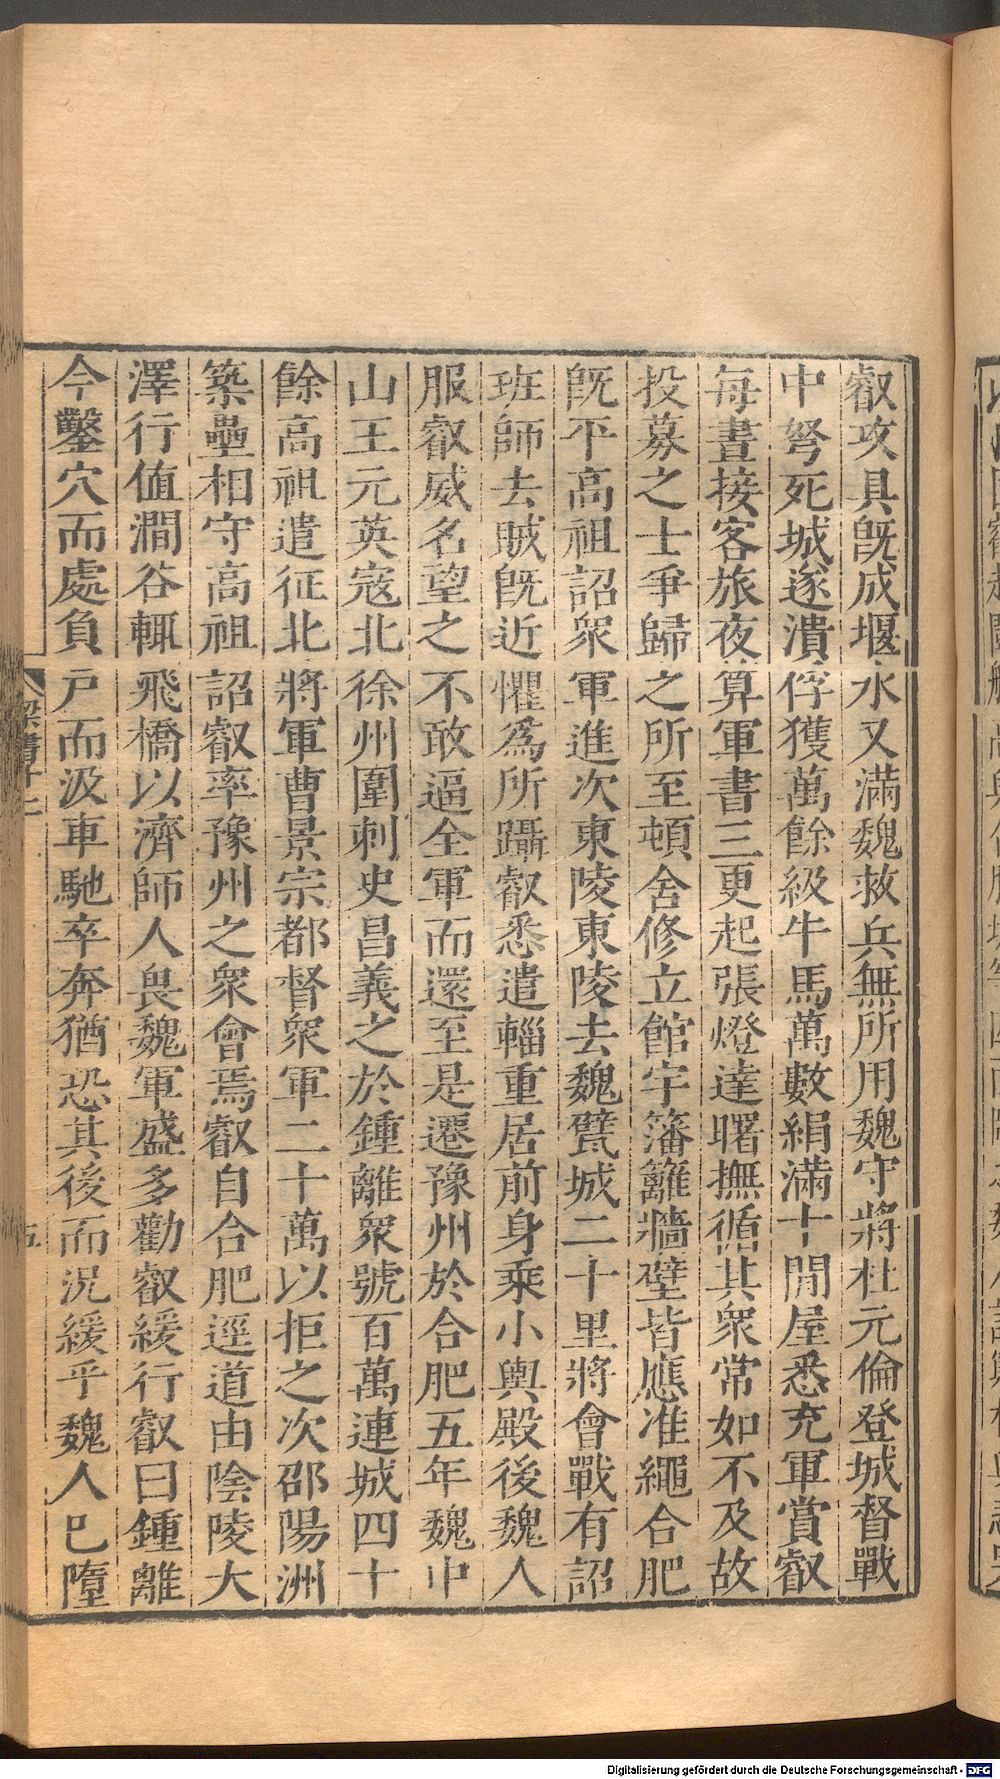 叡攻具旣成堰水又滿魏救兵無所用魏守將杜元倫登城督戰
中弩死城遂潰俘獲萬餘級牛馬萬數絹滿十間屋悉充軍賞叡
每晝接客旅夜算軍書三更起張燈達曙撫循其衆常如不及故
投募之士爭歸之所至頓舍修立館宇籓籬牆壁皆應准繩合肥
旣平高祖詔衆軍進次東陵東陵去魏甓城二十里將會戰有詔
班師去賊旣近懼爲所躡叡悉遣輜重居前身乘小輿殿後魏人
服叡威名望之不敢逼全軍而還至是遷豫州於合肥五年魏中
山王元英寇北徐州圍刺史昌義之於鍾離衆號百萬連城四十
餘高祖遣征北將軍曹景宗都督衆軍二十萬以拒之次邵陽洲
築壘相守高祖詔叡率豫州之衆會焉叡自合肥逕道由陰陵大
澤行値澗谷輒飛橋以濟師人畏魏軍盛多勸叡緩行叡曰鍾離
今鑿穴而處負戸而汲車馳卒奔猶恐其後而況緩乎魏人已墮
梁書十二
五
Digitalisierung gefördert durch die Deutsche Forschungsgemeinschaft - DFG